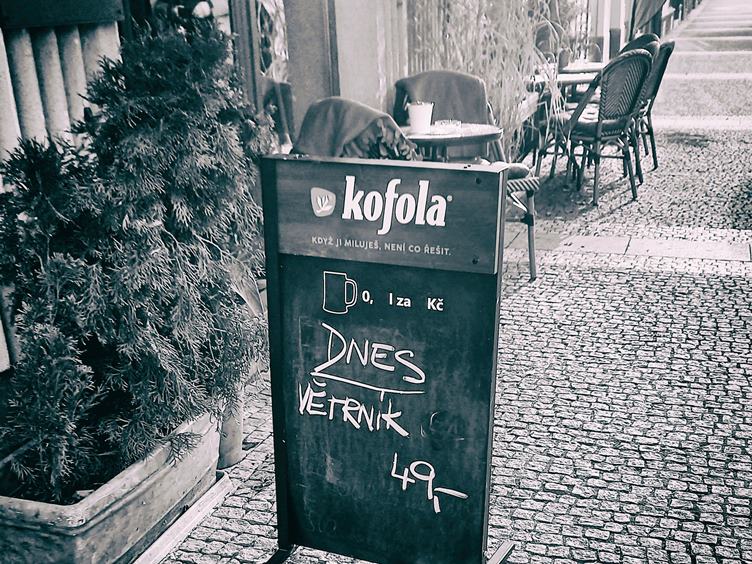 kofola
KDYŽ JI MILUJEŠ, NENÍ CO ŘEŠIT.
0, l za Kč
DNES
VĚTRNÍK
49,-